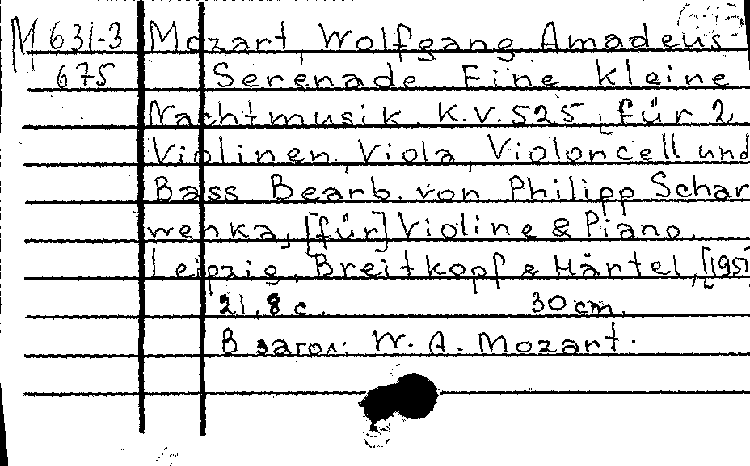 M 631-3 Mozart, Wolfgang Amadeus
675 Serenade Eine kleine
Nachtmusik. K.V. 525, für 2
Violinen, Viola, Violoncell und
Bass Bearb. von Philipp Schar
wenka, [für] Violine & Piano.
Leipzig, Breitkopf & Härtel, [195
21, 8 c. 30 cm.
В загол: W. A. Mozart.